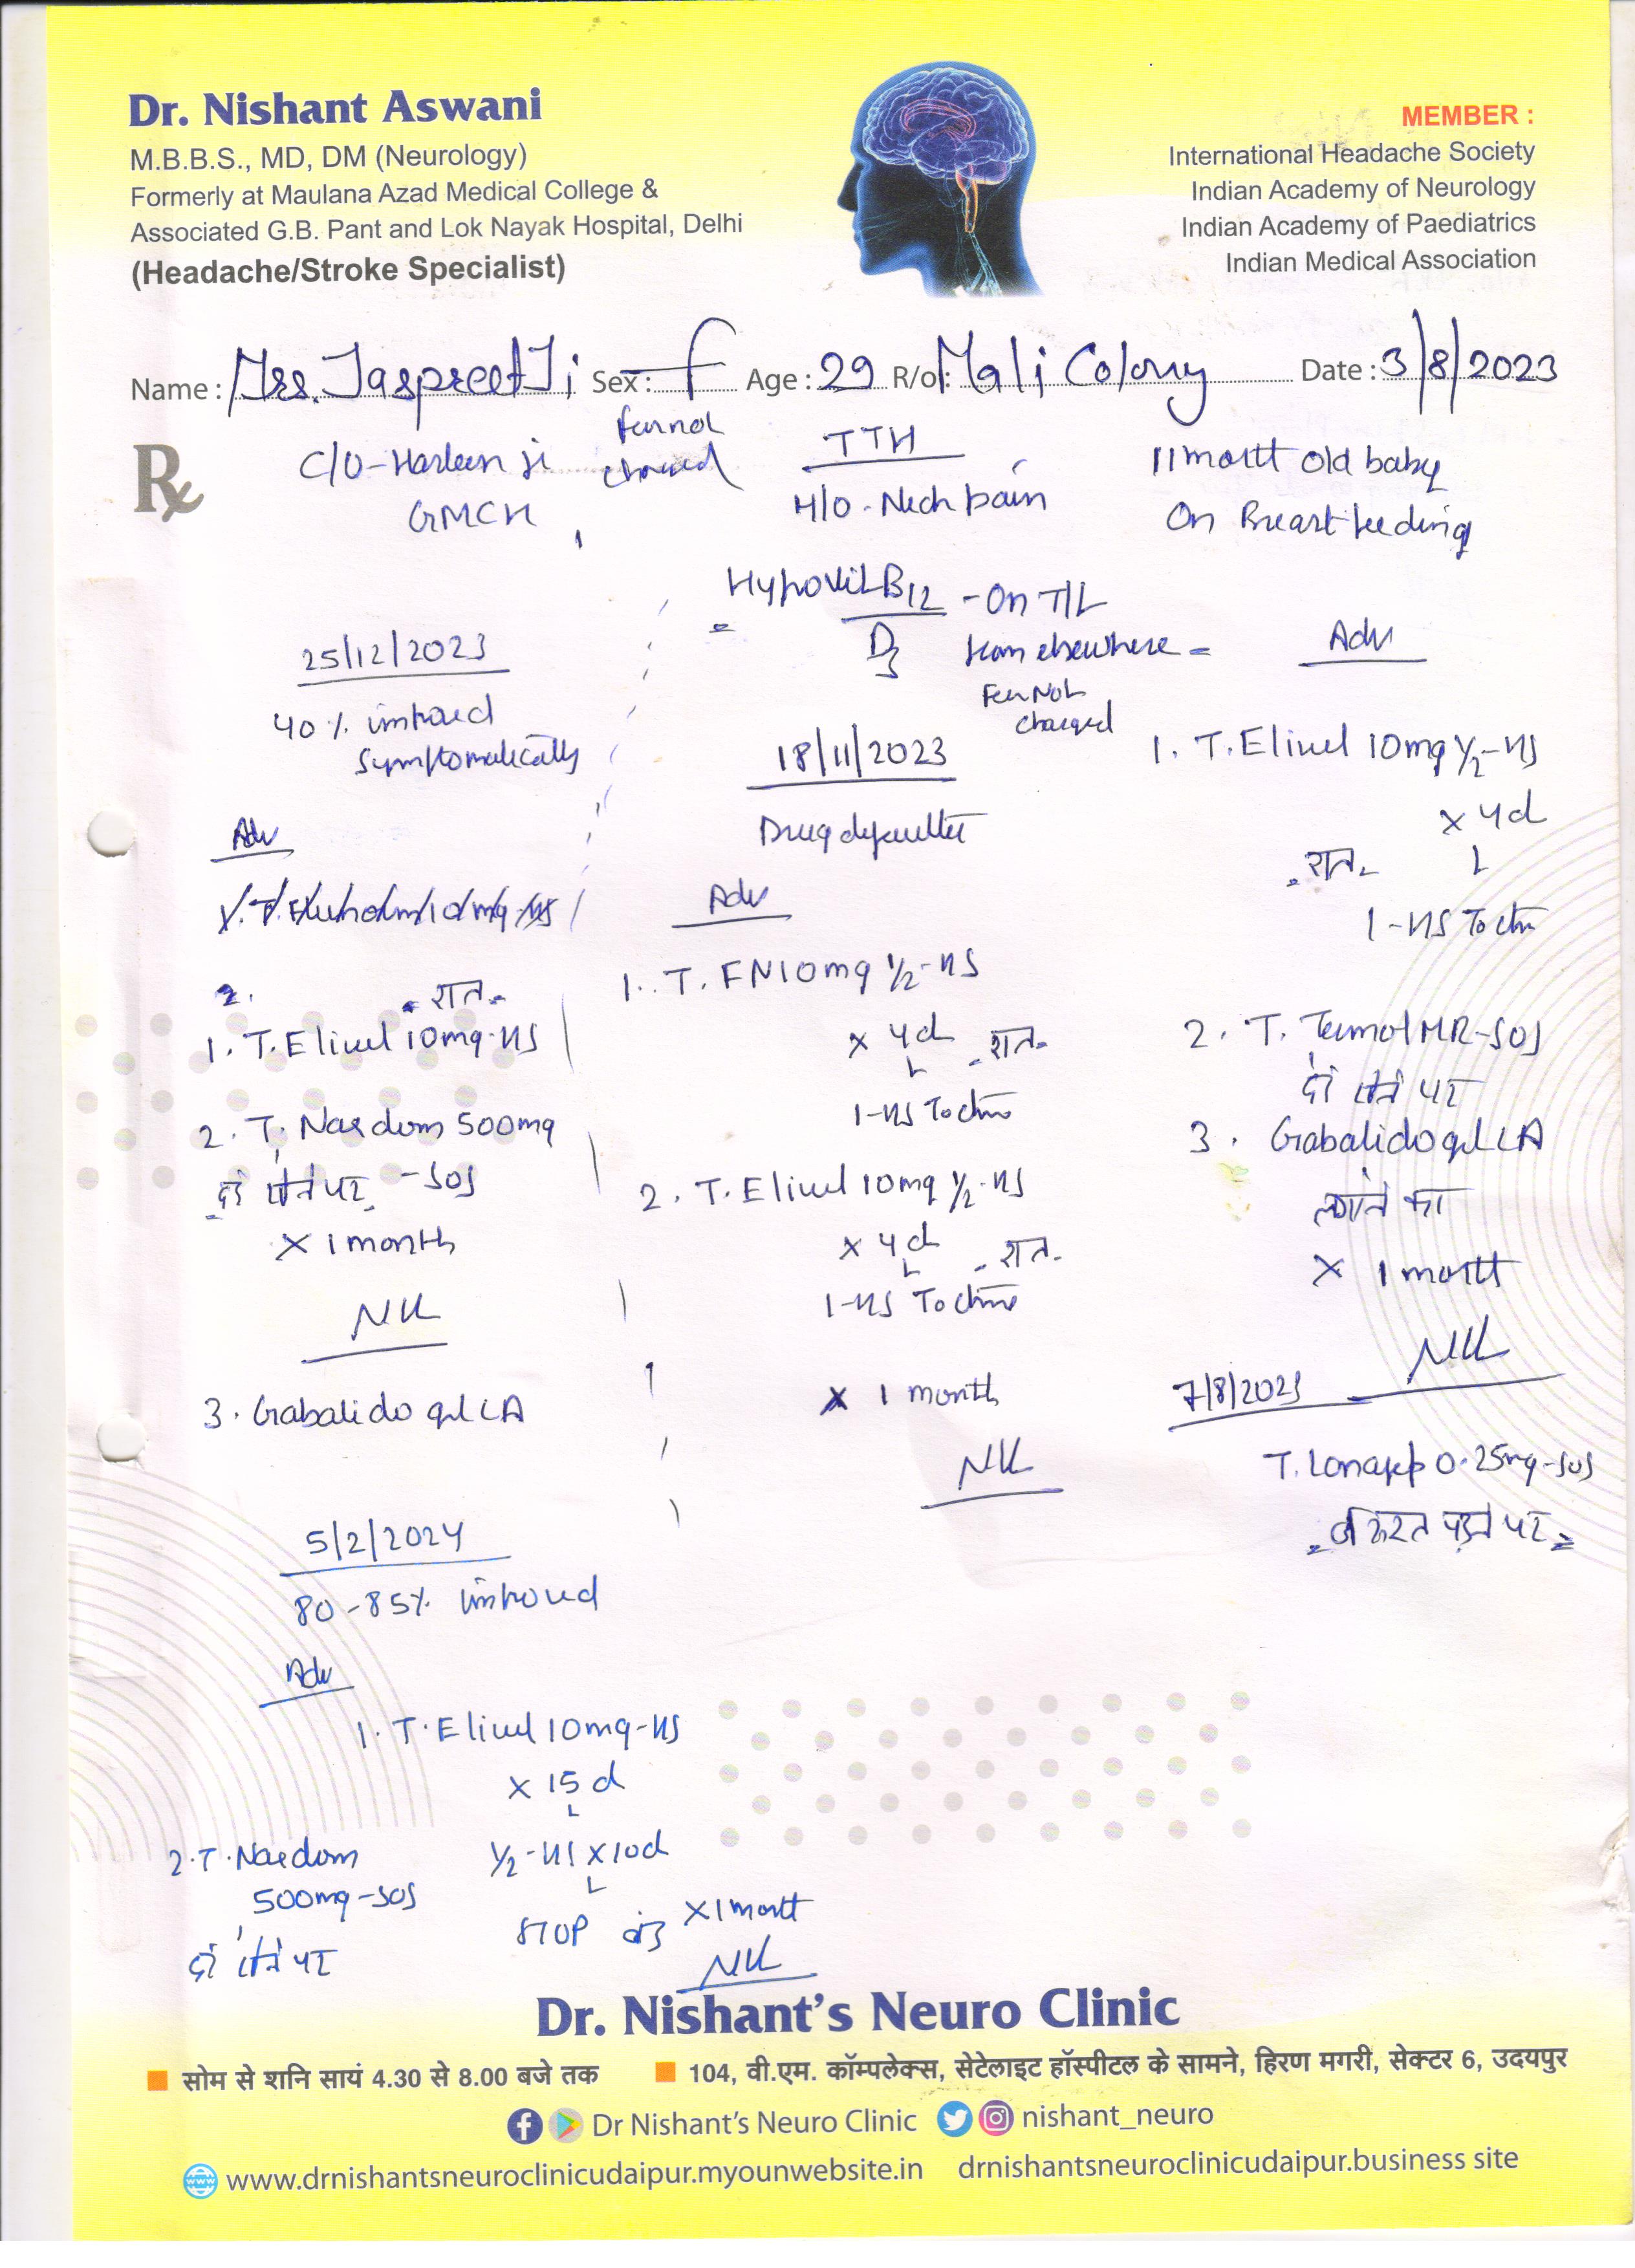 Dr. Nishant Aswani
M.B.B.S., MD, DM (Neurology)
Formerly at Maulana Azad Medical College &
Associated G.B. Pant and Lok Nayak Hospital, Delhi
(Headache/Stroke Specialist)
MEMBER :
International Headache Society
Indian Academy of Neurology
Indian Academy of Paediatrics
Indian Medical Association
Name : Mrs. Jaspreet Ji Sex : F Age : 29 R/o : Mali Colony Date : 3/8/2023
Rx
C/O - Harleen ji
GMCH
Fee not
charged
TTH
H/O - Neck pain
11 month old baby
On Breast feeding
Hypovit B12 - On T/t
D3 from elsewhere =
Fee Not
charged
Adv
1. T. Eliwel 10mg 1/2 - HS
x 4d
रात
1 - HS To
2. T. MR - SOS
दर्द होने पर
3. Gabalido gel LA
लगाने का
x 1 month
7/8/2023
T. 0.25mg - SOS
जरूरत पड़ने पर
18/11/2023
Drug defaulter
Adv
1. T. FN 10mg 1/2 - HS
x 4d रात
1 - HS To
2. T. Eliwel 10mg 1/2 - HS
x 4d रात
1 - HS To
x 1 month
25/12/2023
40% improved
Symptomatically
Adv
2. रात
1. T. Eliwel 10mg - HS
2. T. Naxdom 500mg
दर्द होने पर - SOS
x 1 month
3. Gabalido gel LA
5/2/2024
80 - 85% improved
Adv
1. T. Eliwel 10mg - HS
x 15 d
1/2 - HS x 10d
STOP बंद
x 1 month
2. T. Naxdom
500mg - SOS
दर्द होने पर
Dr. Nishant's Neuro Clinic
सोम से शनि सायं 4.30 से 8.00 बजे तक
104, वी.एम. कॉम्पलेक्स, सेटेलाइट हॉस्पीटल के सामने, हिरण मगरी, सेक्टर 6, उदयपुर
Dr Nishant's Neuro Clinic nishant_neuro
www.drnishantsneuroclinicudaipur.myounwebsite.in drnishantsneuroclinicudaipur.business site